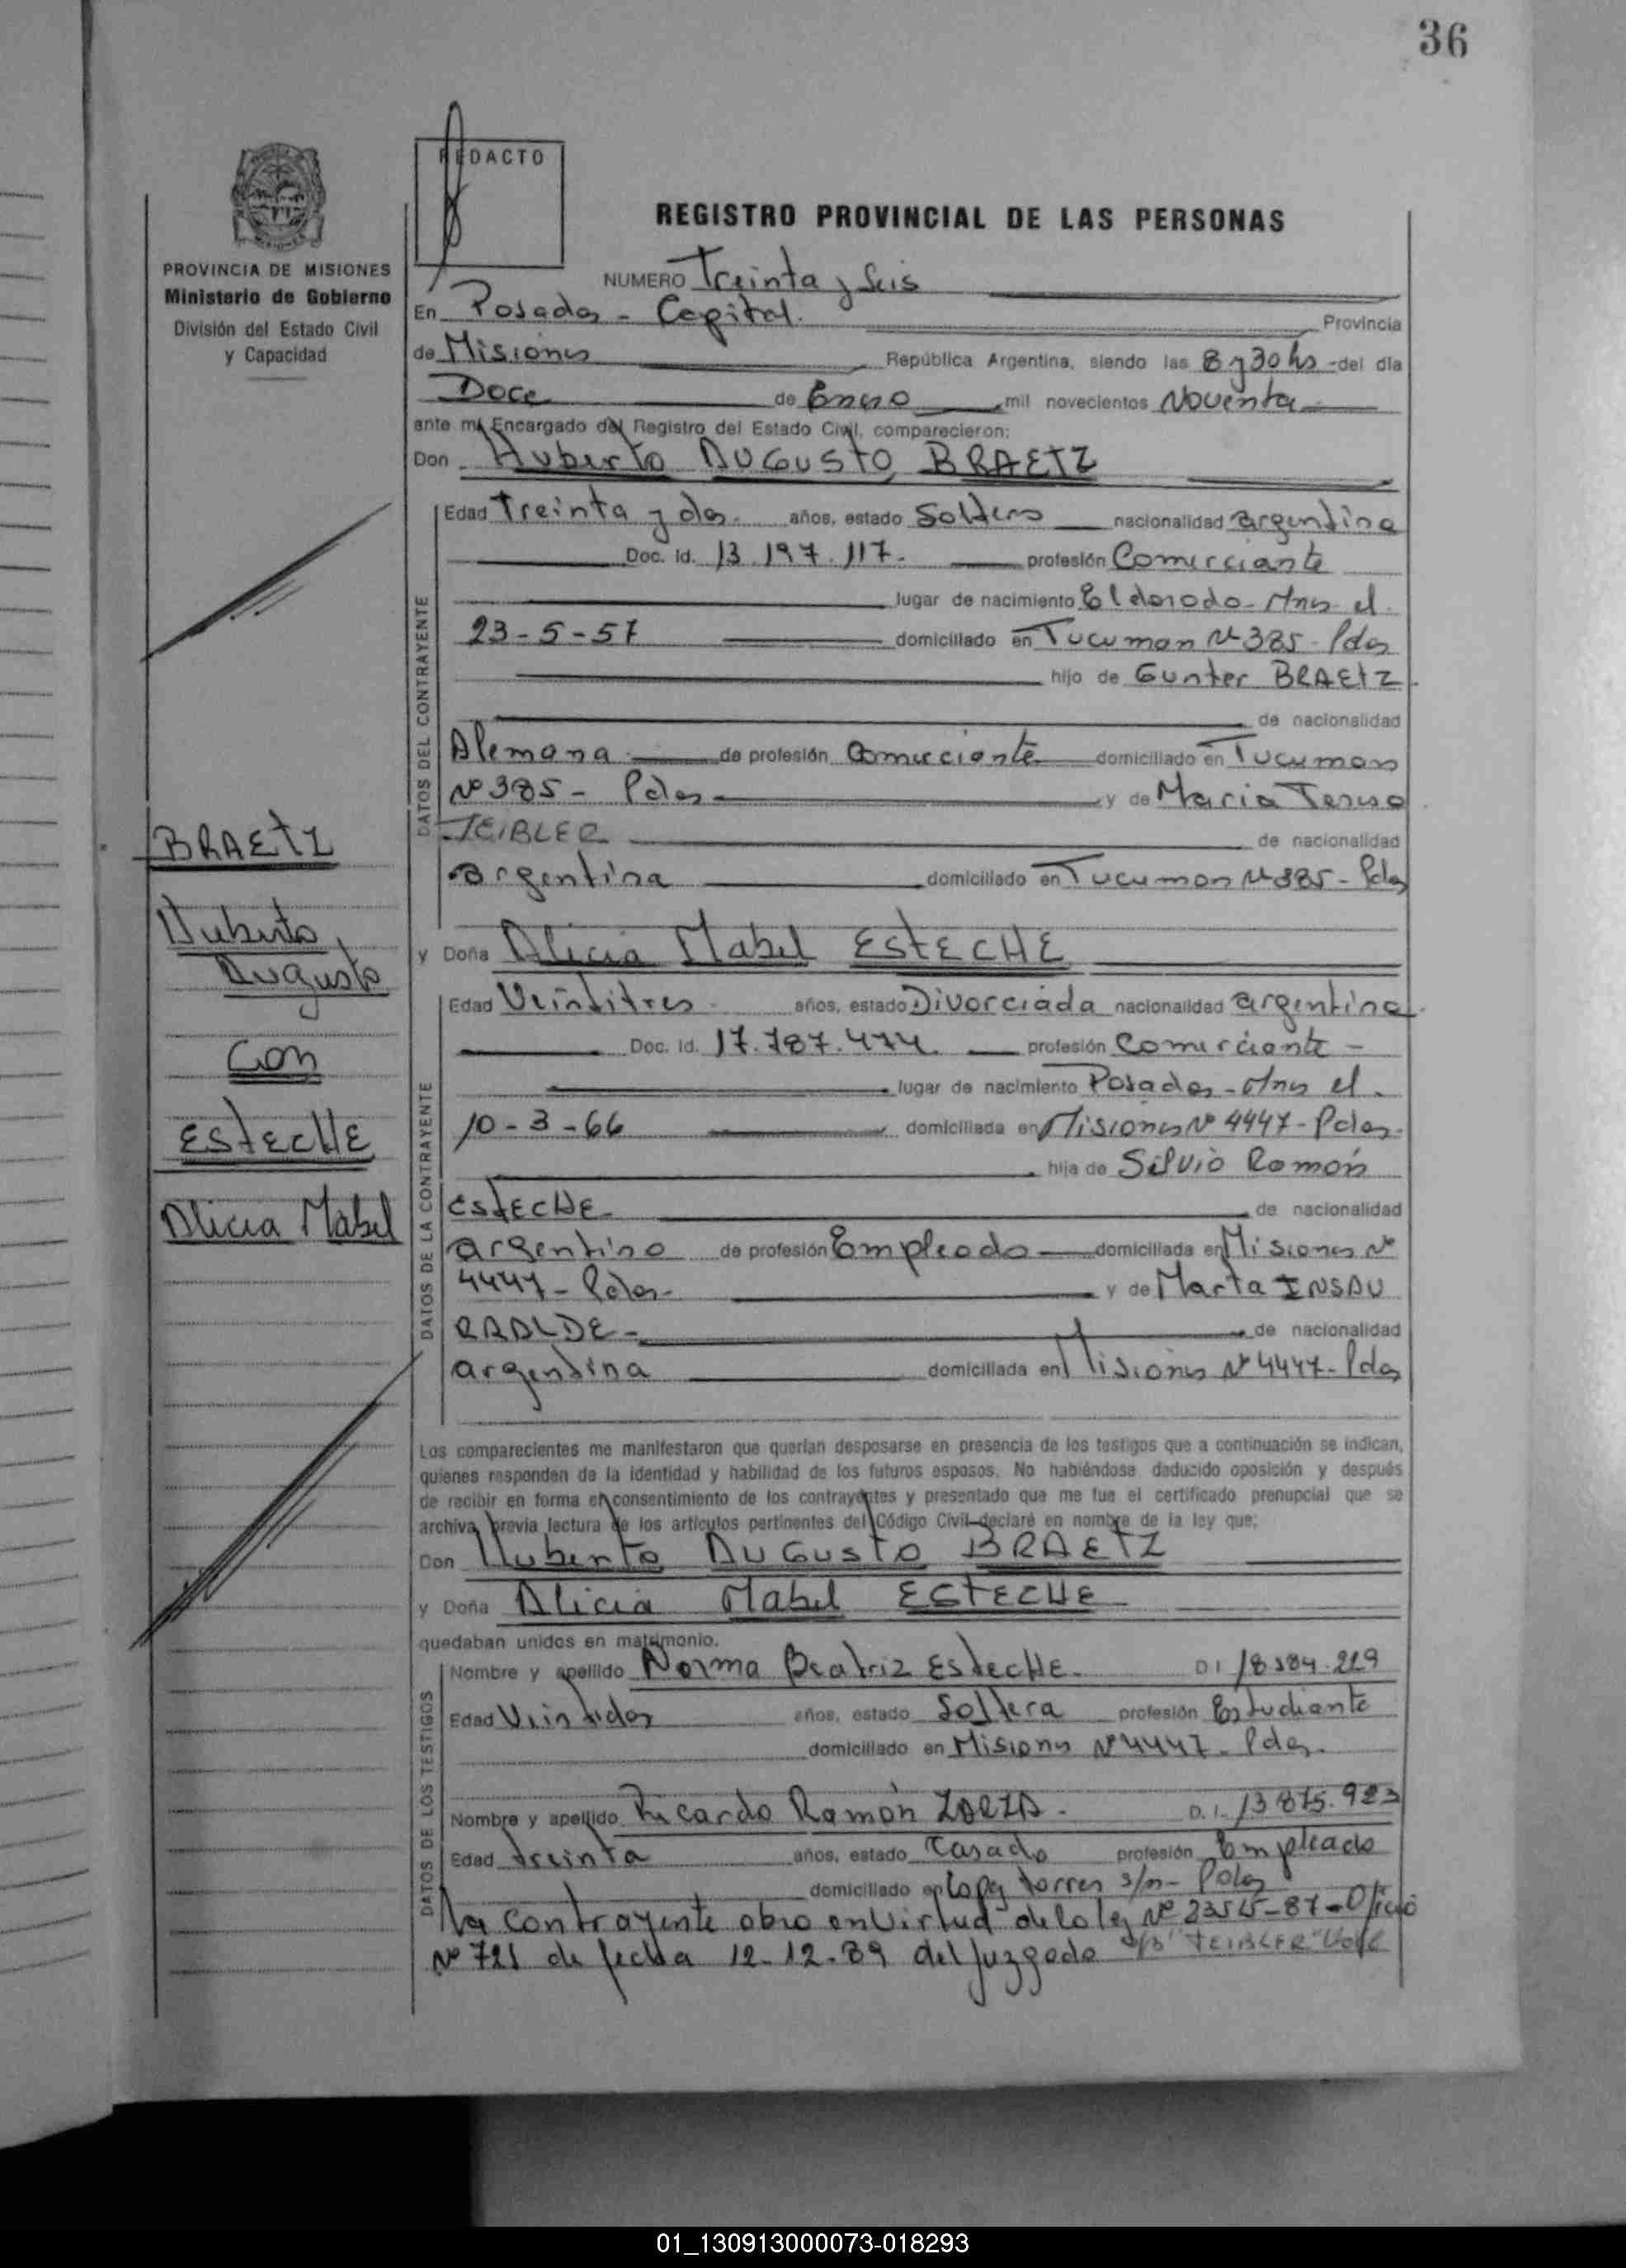 36
REDACTO
REGISTRO PROVINCIAL DE LAS PERSONAS
PROVINCIA DE MISIONES
Ministerio de Gobierno
División del Estado Civil
y Capacidad
NUMERO Treinta y Seis
En Posadas - Capital. Provincia
de Misiones República Argentina, siendo las 8 y 30 hs - del día
Doce de Enero mil novecientos Noventa
ante mí Encargado del Registro del Estado Civil, comparecieron:
Don Huberto AUGUSTO BRAETZ
DATOS DEL CONTRAYENTE
Edad Treinta y dos. años, estado Soltero nacionalidad argentina
Doc. Id. 13.197.117. profesión Comerciante
lugar de nacimiento Eldorado - Mnes el
23-5-57 domiciliado en Tucuman Nº 385 - Pdas
hijo de Gunter BRAETZ
de nacionalidad
Alemana de profesión Comerciante domiciliado en Tucuman
Nº 385 - Pdas y de Maria Teresa
TEIBLER de nacionalidad
argentina domiciliado en Tucuman Nº 385 - Pdas
BRAETZ
Huberto
Augusto
Con
ESTECHE
Alicia Mabel
y Doña Alicia Mabel ESTECHE
DATOS DE LA CONTRAYENTE
Edad Veintitres años, estado Divorciada nacionalidad argentina
Doc. Id. 17.787.474. profesión Comerciante -
lugar de nacimiento Posadas - Mnes el.
10-3-66 domiciliada en Misiones Nº 4447 - Pdas.
hija de Silvio Ramón
ESTECHE de nacionalidad
argentino de profesión Empleado domiciliada en Misiones Nº
4447 - Pdas - y de Marta INSAU
RRALDE - de nacionalidad
argentina domiciliada en Misiones Nº 4447 - Pdas
Los comparecientes me manifestaron que querían desposarse en presencia de los testigos que a continuación se indican,
quienes responden de la identidad y habilidad de los futuros esposos. No habiéndose deducido oposición y después
de recibir en forma el consentimiento de los contrayentes y presentado que me fue el certificado prenupcial que se
archiva, previa lectura de los artículos pertinentes del Código Civil declaré en nombre de la ley que:
Don Huberto AUGUSTO BRAETZ
y Doña Alicia Mabel ESTECHE
quedaban unidos en matrimonio.
DATOS DE LOS TESTIGOS
Nombre y apellido Norma Beatriz ESTECHE. D I
Edad Veintidos años, estado Soltera profesión Estudiante
domiciliado en Misiones Nº 4447 - Pdas.
Nombre y apellido Ricardo Ramón D. I. 13.875.923
Edad treinta años, estado Casado profesión Empleado
domiciliado en Lopez torres s/n - Pdas
La contrayente obro en virtud de la ley Nº 23515-87 - Oficio
Nº 721 de fecha 12-12-89 del Juzgado s/b "TEIBLER" Vale
01_130913000073-018293